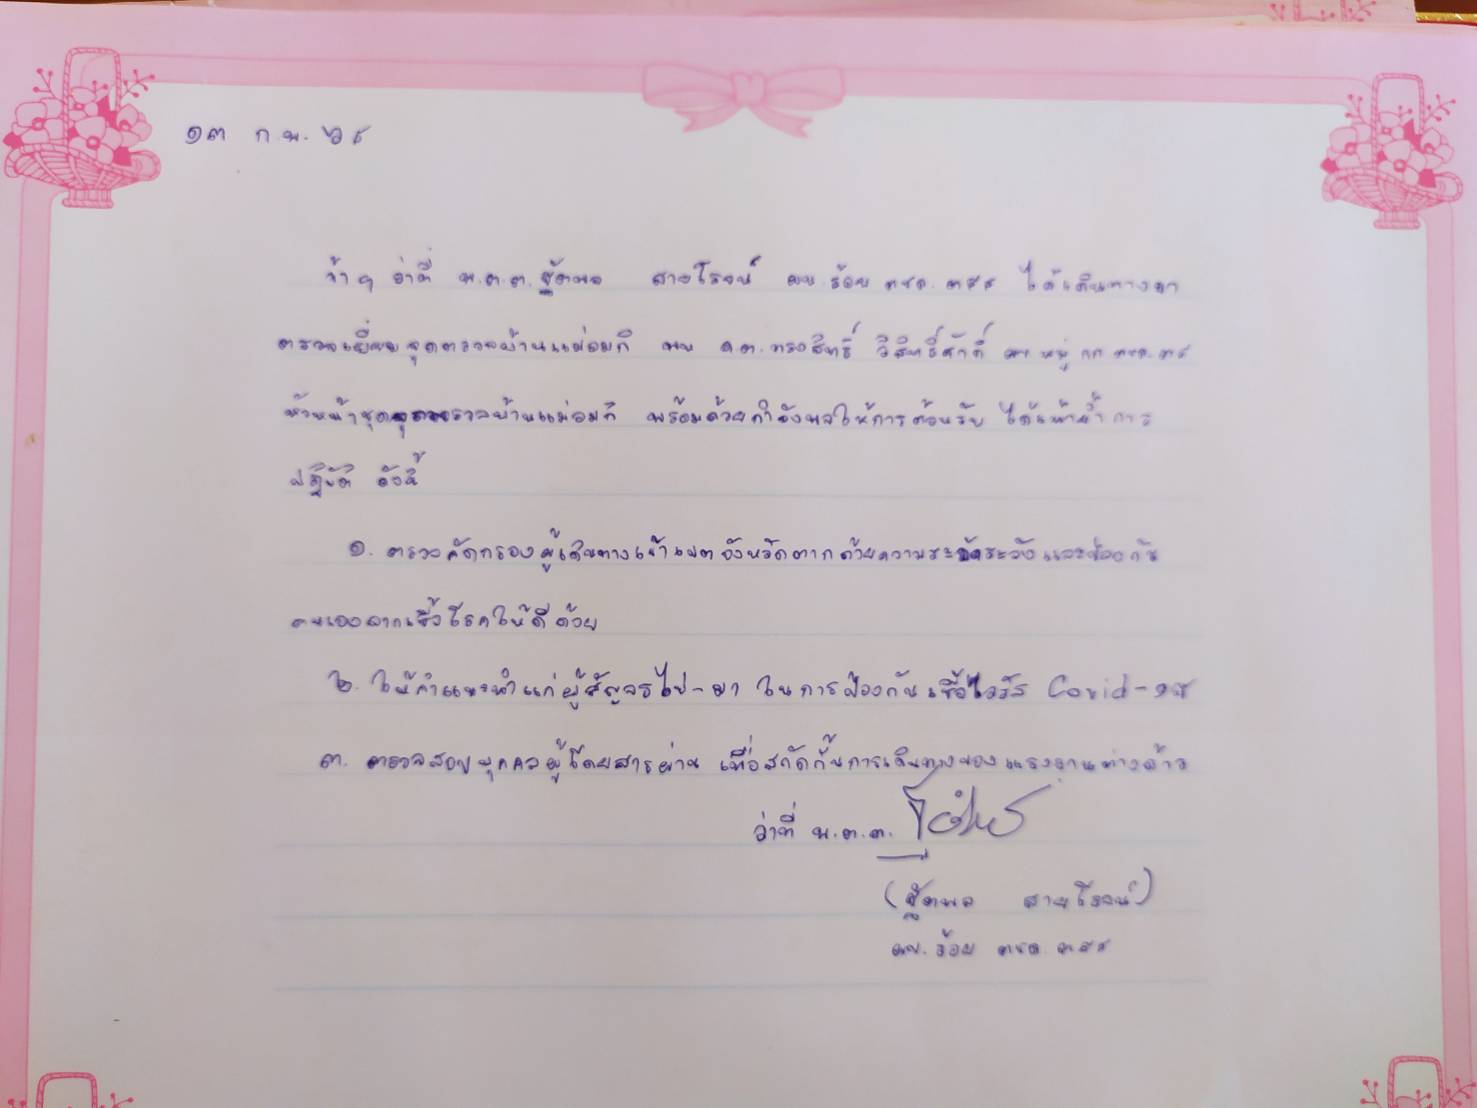 ๑๓ ก.พ. ๖๔
ข้าฯ ว่าที่ พ.ต.ต.ฐัตพล สายโรจน์ ผบ.ร้อย ตชด.๓๔๔ ได้เดินทางมา
ตรวจเยี่ยมจุดตรวจบ้านแม่อมกิ พบ ด.ต.ทรงสิทธิ์ วิสิทธิ์ศักดิ์ ผบ.หมู่ กก.ตชด.๓๔
หัวหน้าชุดจุดตรวจบ้านแม่อมกิ พร้อมด้วยกำลังพลให้การต้อนรับ ได้เน้นย้ำการ
ปฏิบัติ ดังนี้
๑. ตรวจคัดกรองผู้เดินทางเข้าเขตจังหวัดตากด้วยความระมัดระวังและป้องกัน
ตนเองจากเชื้อโรคให้ดีด้วย
๒. ให้คำแนะนำแก่ผู้สัญจรไป-มา ในการป้องกันเชื้อไวรัส Covid-๑๙
๓. ตรวจสอบบุคคลผู้โดยสารผ่าน เพื่อสกัดกั้นการเดินทางของแรงงานต่างด้าว
ว่าที่ พ.ต.ต.
(ฐัตพล สายโรจน์)
ผบ.ร้อย ตชด.๓๔๔